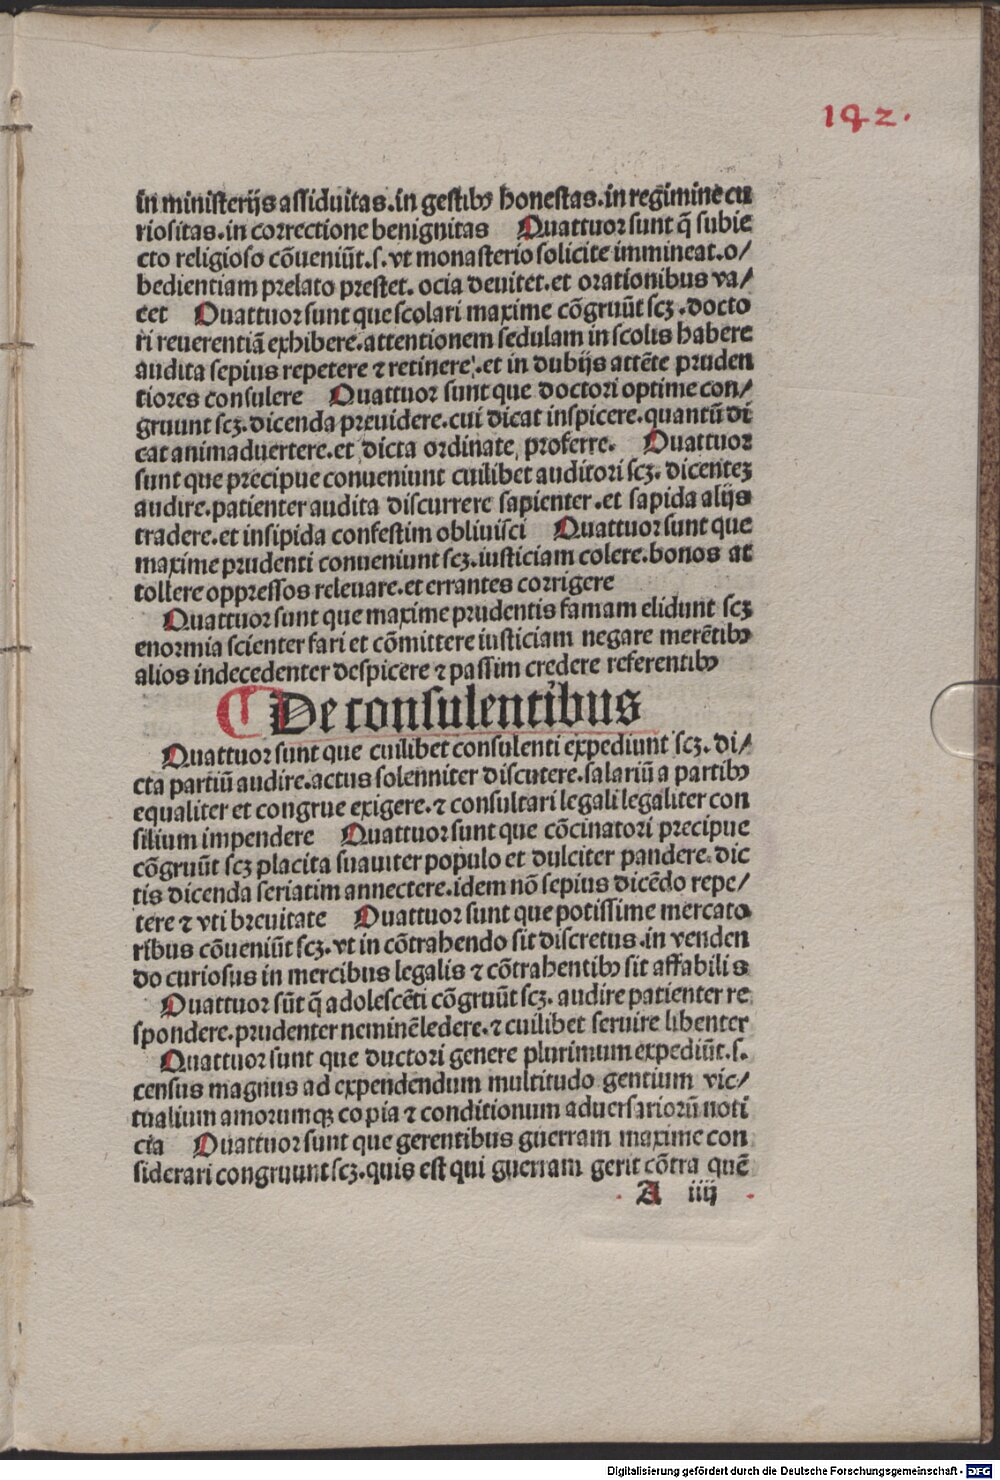 142.
in ministerijs assiduitas.in gestibꝰ honestas.in regimine cu
riositas.in correctione benignitas Quattuor sunt q̄ subie
cto religioso cōueniūt.s.vt monasterio solicite immineat.o/
bedientiam prelato prestet. ocia deuitet.et orationibus va/
cet Quattuor sunt que scolari maxime cōgruūt scꝫ.docto
ri reuerentiā exhibere.attentionem sedulam in scolis habere
audita sepius repetere ⁊ retinere.et in dubijs attēte pruden
tiores consulere Quattuor sunt que doctori optime con/
gruunt scꝫ.dicenda preuidere.cui dicat inspicere.quantū di
cat animaduertere.et dicta ordinate proferre. Quattuor
sunt que precipue conueniunt cuilibet auditori scꝫ. dicenteꝫ
audire.patienter audita discurrere sapienter.et sapida alijs
tradere.et insipida confestim obliuisci Quattuor sunt que
maxime prudenti conueniunt scꝫ.iusticiam colere.bonos at
tollere oppressos releuare.et errantes corrigere
Quattuor sunt que maxime prudentis famam elidunt scꝫ
enormia scienter fari et cōmittere iusticiam negare merētibꝰ
alios indecedenter despicere ⁊ passim credere referentibꝰ
¶ De consulentibus
Quattuor sunt que cuilibet consulenti expediunt scꝫ. di/
cta partiū audire.actus solenniter discutere.salariū a partibꝰ
equaliter et congrue exigere.⁊ consultari legali legaliter con
silium impendere Quattuor sunt que cōcinatori precipue
cōgruūt scꝫ placita suauiter populo et dulciter pandere.dic
tis dicenda seriatim annectere.idem nō sepius dicēdo repe/
tere ⁊ vti breuitate Quattuor sunt que potissime mercato
ribus cōueniūt scꝫ.vt in cōtrahendo sit discretus.in venden
do curiosus in mercibus legalis ⁊ cōtrahentibꝰ sit affabilis
Quattuor sūt q̄ adolescēti cōgruūt scꝫ. audire patienter re
spondere.prudenter neminē ledere.⁊ cuilibet seruire libenter
Quattuor sunt que ductori genere plurimum expediūt.s.
census magnus ad expendendum multitudo gentium vic/
tualium amorumqꝫ copia ⁊ conditionum aduersariorū noti
cia Quattuor sunt que gerentibus guerram maxime con
siderari congruunt scꝫ.quis est qui guerram gerit cōtra quē
A iiij
Digitalisierung gefördert durch die Deutsche Forschungsgemeinschaft - DFG